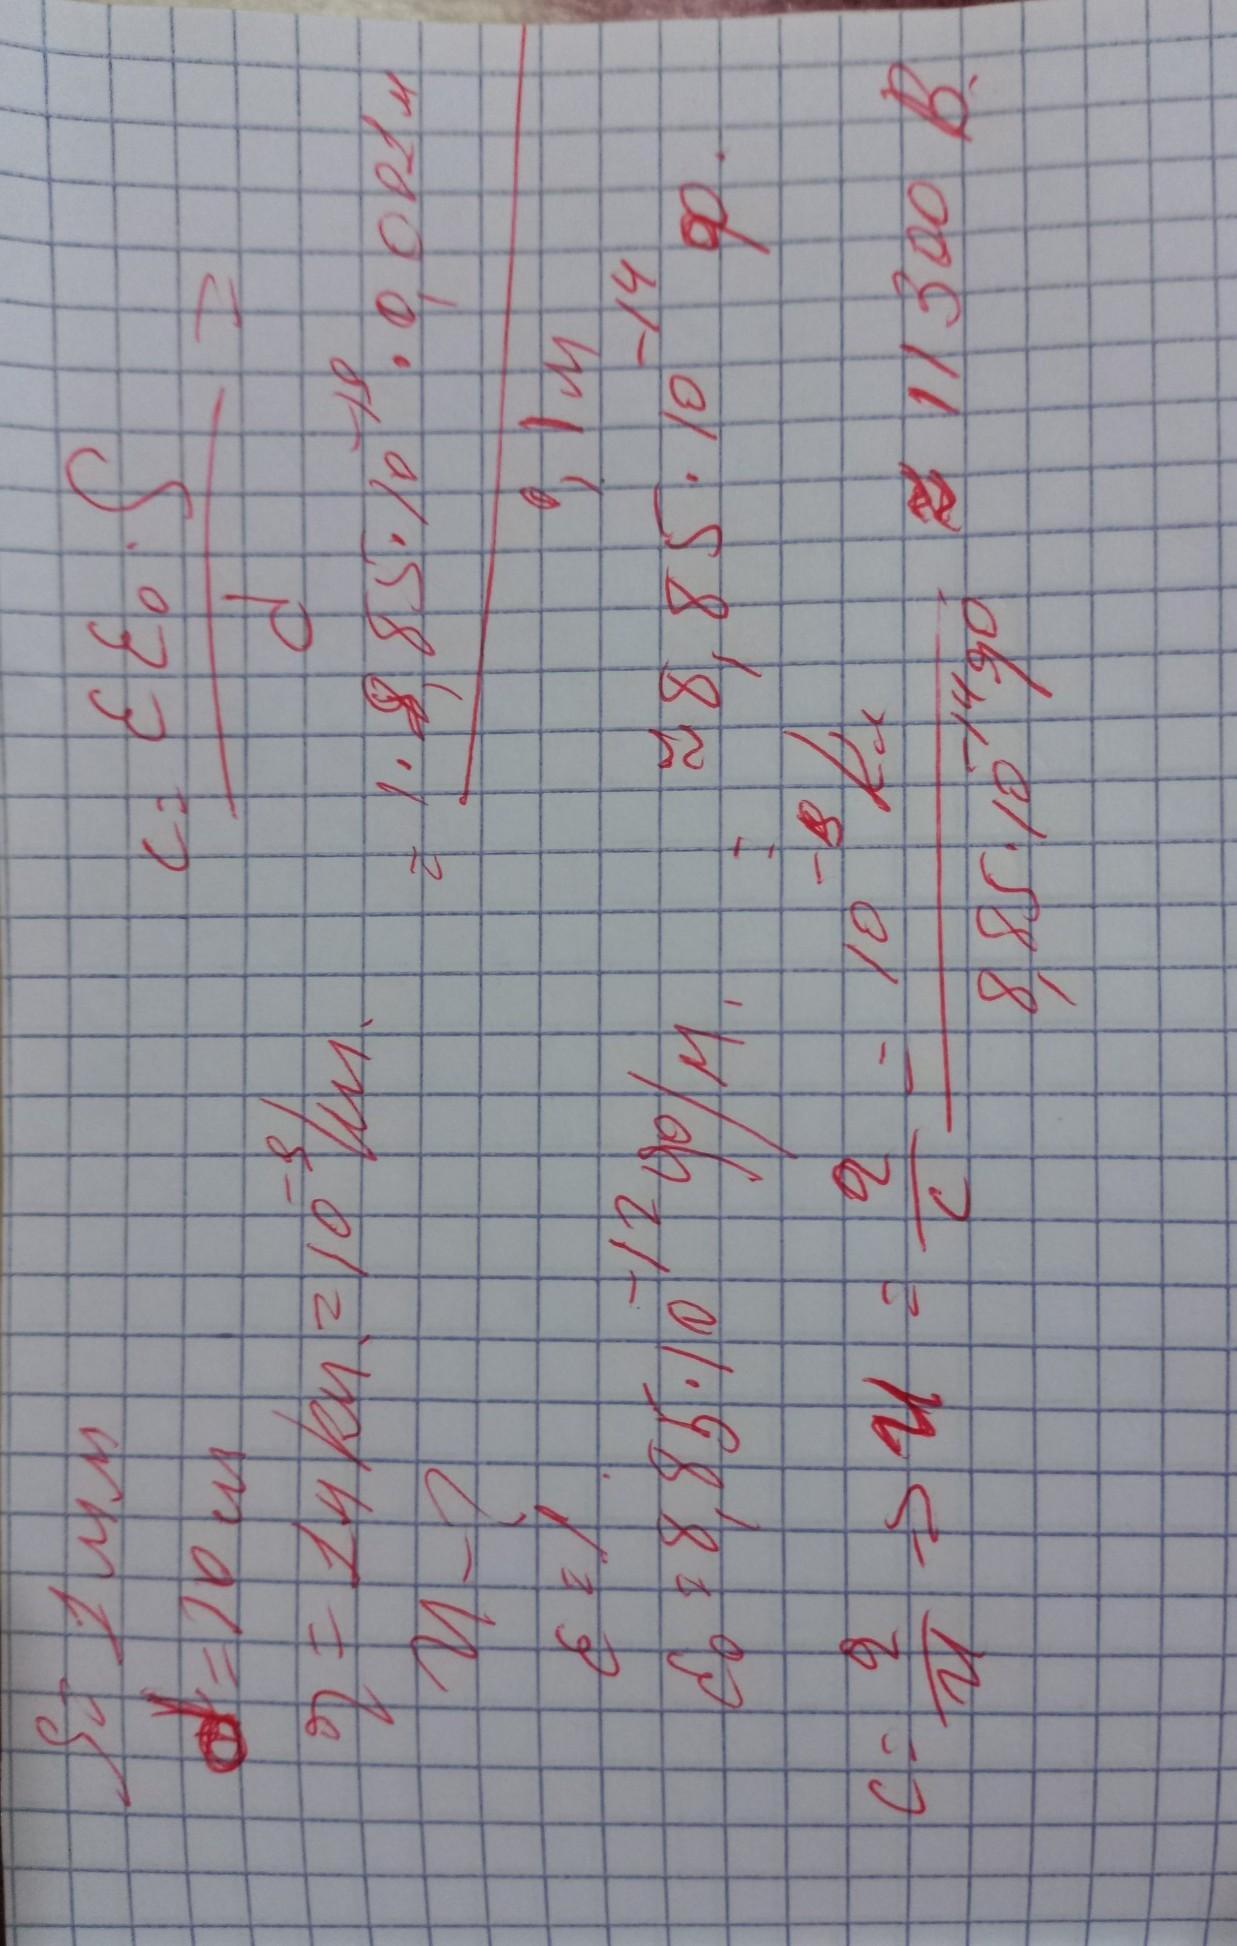 S = 1 мм
d = 10 м
C = εε₀·S / d =
= 1·8,85·10⁻¹²·0,001 м / 0,1 м
U - ?
ε = 1
ε₀ = 8,85·10⁻¹² Ф/м
≈ 8,85·10⁻¹⁴ Ф.
C = q/U => U = q/C = 10⁻⁹ Кл / 8,85·10⁻¹⁴ Ф ≈ 11300 В.